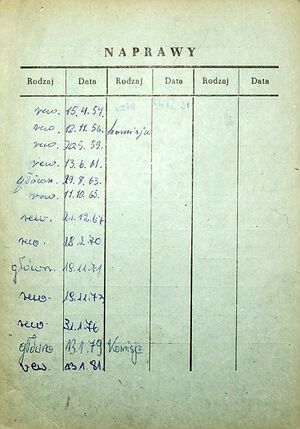 NAPRAWY
Rodzaj Data Rodzaj Data Rodzaj Data
rew. 15.4.54.
rew. 12.11.56. komisja
rew. 20.5.59.
rew. 13.6.61.
główn. 29.8.63.
rew. 11.10.65.
rew. 21.12.67
rew. 18.2.70
główn. 18.11.71
rew. 18.11.73
rew. 31.1.76
główna 13.1.79 Komisja
rew. 23.1.81.